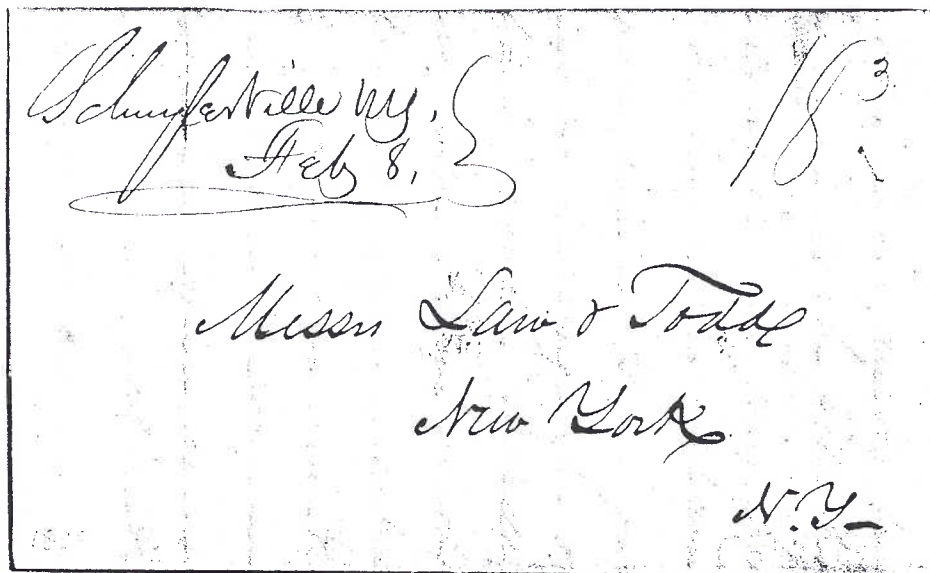 Schuylerville NY.
Feb 8,
18 3
Messrs Law & Todd
New York
N.Y—